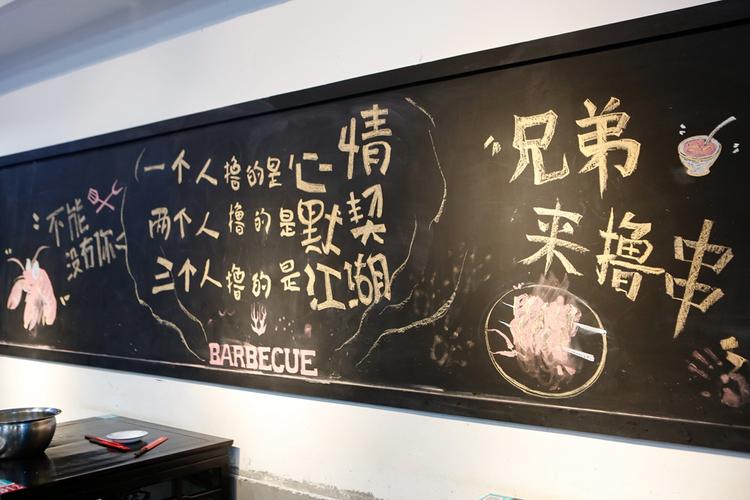 不能
没有你
一个人撸的是心情
两个人撸的是默契
三个人撸的是江湖
BARBECUE
兄弟
来撸串